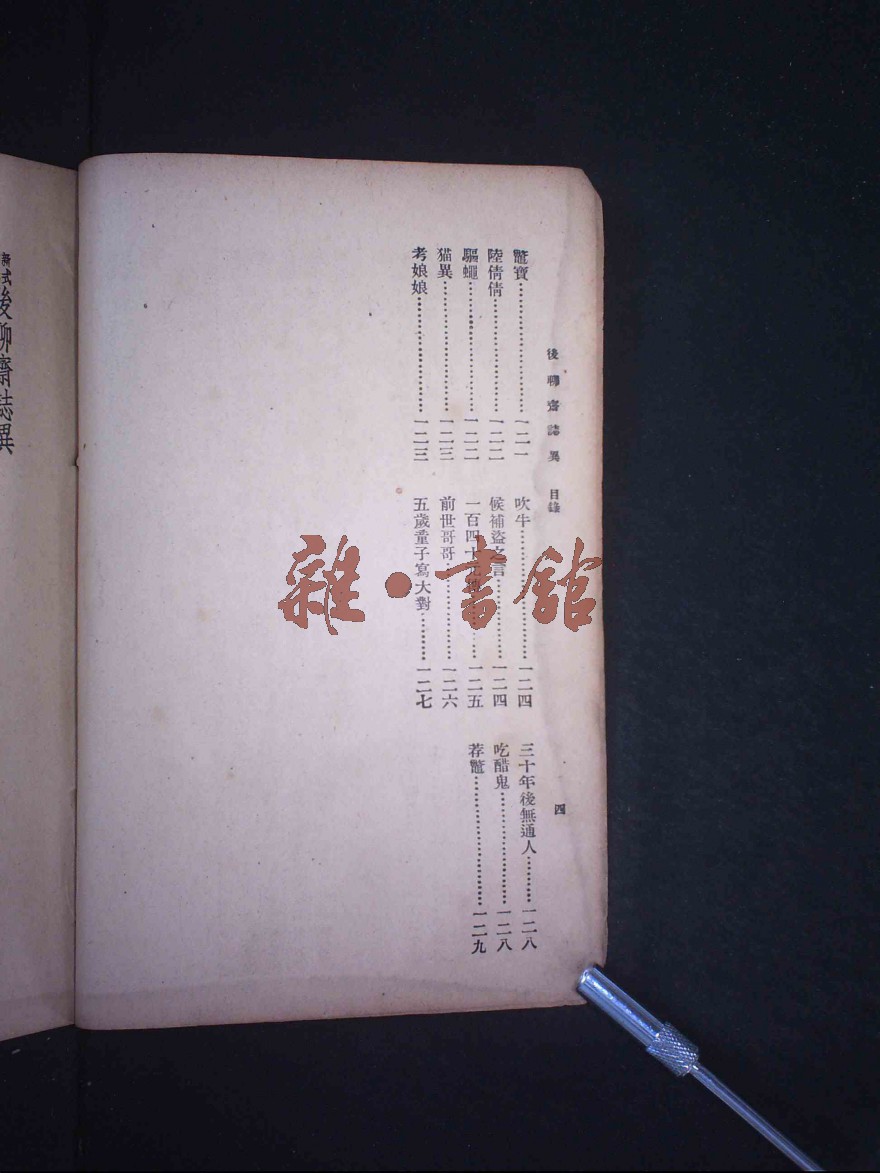 後聊齋誌異 目錄
四
鼈寶⋯⋯一二一
陸倩倩⋯⋯一二二
驅蠅⋯⋯一二二
猫異⋯⋯一二三
考娘娘⋯⋯一二三
吹牛⋯⋯一二四
候補盜之言⋯⋯一二四
一百四十⋯⋯一二五
前世哥哥⋯⋯一二六
五歲童子寫大對⋯⋯一二七
三十年後無通人⋯⋯一二八
吃醋鬼⋯⋯一二八
荐鼈⋯⋯一二九
新式後聊齋誌異
雜·書館